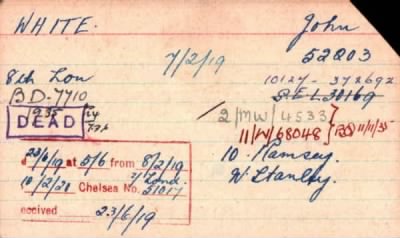 WHITE. John
7/2/19 52203
8th Lon 10127 - 372692
BD-7710 SEL30169
1935 2/MW/4533
DEAD 11/W/68048 11/11/35
10. Ramsey.
W Stanley.
23/6/19 at 5/6 from 8/2/19
10/2/20 Chelsea No. 51017
eceived 23/6/19